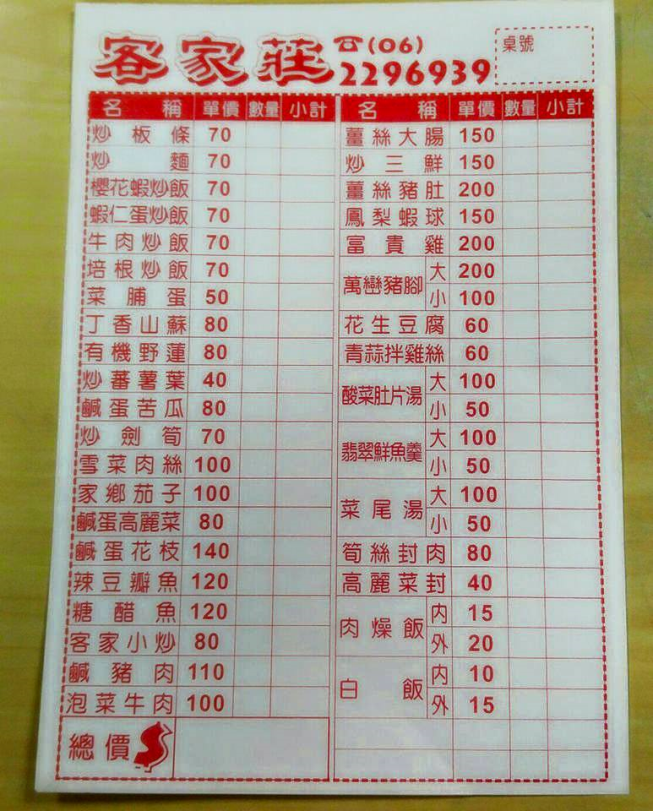 客家莊 ☎(06) 2296939 桌號
名稱 單價 數量 小計
炒板條 70
炒麵 70
櫻花蝦炒飯 70
蝦仁蛋炒飯 70
牛肉炒飯 70
培根炒飯 70
菜脯蛋 50
丁香山蘇 80
有機野蓮 80
炒蕃薯葉 40
鹹蛋苦瓜 80
炒劍筍 70
雪菜肉絲 100
家鄉茄子 100
鹹蛋高麗菜 80
鹹蛋花枝 140
辣豆瓣魚 120
糖醋魚 120
客家小炒 80
鹹豬肉 110
泡菜牛肉 100
總價
名稱 單價 數量 小計
薑絲大腸 150
炒三鮮 150
薑絲豬肚 200
鳳梨蝦球 150
富貴雞 200
萬巒豬腳 大 200
小 100
花生豆腐 60
青蒜拌雞絲 60
酸菜肚片湯 大 100
小 50
翡翠鮮魚羹 大 100
小 50
菜尾湯 大 100
小 50
筍絲封肉 80
高麗菜封 40
肉燥飯 內 15
外 20
白飯 內 10
外 15